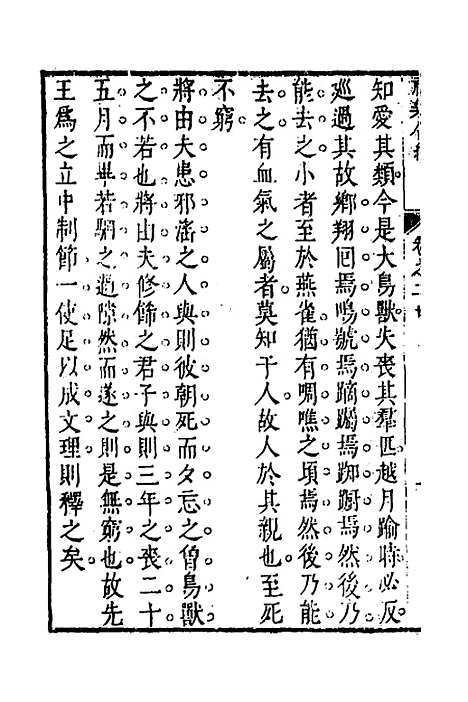 知愛其類今是大鳥獸失喪其羣匹越月踰時必反
廵過其故鄉翔回焉鳴號焉蹢躅焉踟蹰焉然後乃
能去之小者至於燕雀猶有啁噍之頃焉然後乃能
去之有血氣之屬者莫知于人故人於其親也至死
不窮
將由夫患邪滛之人與則彼朝死而夕忘之曾鳥獸
之不若也將由夫修餙之君子與則三年之喪二十
五月而畢若駟之過隙然而遂之則是無窮也故先
王爲之立中制節一使足以成文理則釋之矣